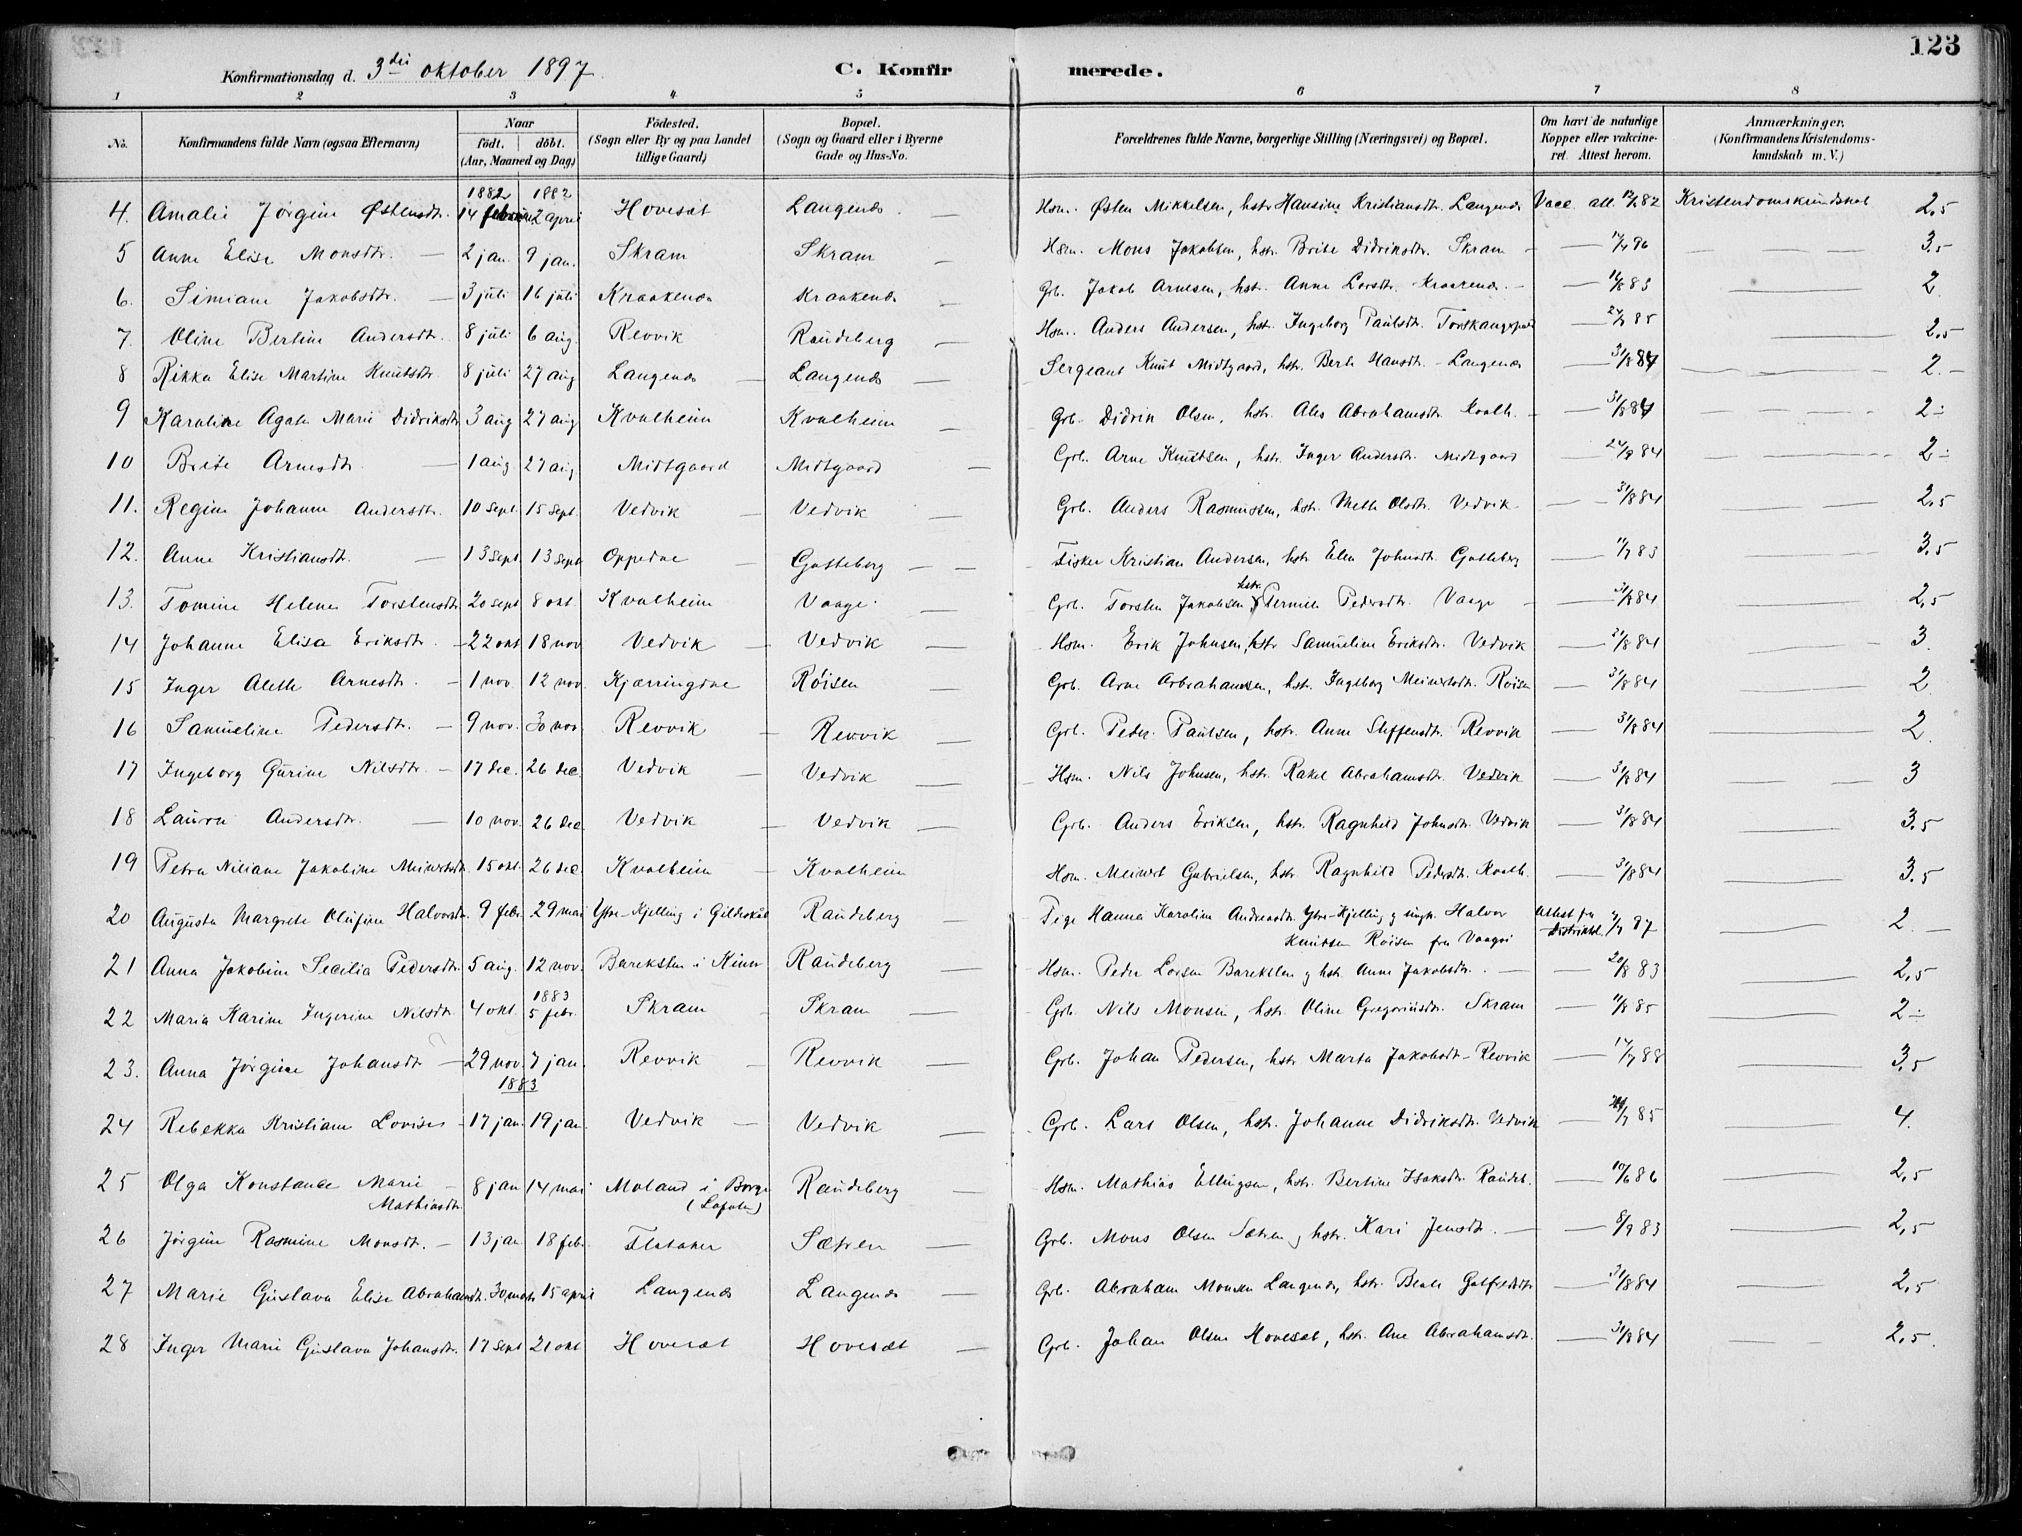 123
Konfirmationsdag d. 3die oktober 1897. C. Konfirmerede.
1 2 3 4 5 6 7 8
No. Konfirmandens fulde Navn (ogsaa Efternavn) Naar født. døbt. (Aar, Maaned og Dag) Fødested. (Sogn eller By og paa Landet tillige Gaard) Bopæl. (Sogn og Gaard eller i Byerne Gade og Hus-No. Forældrenes fulde Navne, borgerlige Stilling (Næringsvei) og Bopæl. Om havt de naturlige Kopper eller vakcineret. Attest herom. Anmærkninger. (Konfirmandens Kristendomskundskab m. V.)
1882 1882
4. Amalie Jørgine Østensdtr. 14 februar 2 april Hovesæt Langenæs Hsm. Østen Mikkelsen, hstr Hansine Kristiansdtr. Langenæs Vacc. att. 82 Kristendomskundskab 2,5
5 Anne Elise Monsdtr. — 2 jan. 9 jan. Skram Skram — Hsm. Mons Jakobsen, hstr. Brite Didriksdtr. Skram — 96 — 3.5
6. Simiane Jakobsdtr. — 3 juli 16 juli Kraakenæs Kraakenæs — Grb. Jakob Arnesen, hstr. Anne Larsdtr. Kraakenæs — 83 — 2
7. Oline Bertine Andersdtr. 8 juli 6 aug. Revvik Raudeberg — Hsm. Anders Andersen, hstr. Ingeborg Paulsdtr. — 85 — 2,5
8 Rikka Elise Martine Knutsdtr. 8 juli 27 aug Langenæs — Langenæs — Sergeant Knut Midtgaard, hstr. Berte Hansdtr. - Langenæs — 31/8 84 — 2. —
9 Karoline Agate Marie Didriksdtr 3 aug 27 aug Kvalheim Kvalheim — Grb. Didrik Olsen, hstr. Ales Abrahamsdtr. Kvalh. — 31/8 84 — 2 -
10 Brite Arnesdtr. — 1 aug 27 aug Midtgaard Midtgaard — Grb. Arne Knutsen, hstr. Inger Andersdtr. Midtgaard — 84 — 2 -
11. Regine Johanne Andersdtr. 10 sept. 15 sept. Vedvik — Vedvik — Grb. Anders Rasmussen, hstr. Mette Olsdtr. Vedvik — 31/8 84 — 2,5
12. Anne Kristiansdtr. — 13 sept 13 sept Oppedal — Gotteberg — Fisker Kristian Andersen, hstr Elen Johnsdtr. Gotteberg — 83 — 3.5
13. Tomine Helene Torstensdtr 20 sept 8 okt. Kvalheim Vaage — Grb. Torsten Jakobsen, hstr. Pernille Pedersdtr. Vaage — 31/8 84 — 2,5
14 Johanne Elisa Eriksdtr. - 22 okt 18 nov Vedvik — Vedvik — Hsm. Erik Johnsen, hstr Samueline Eriksdtr. Vedvik — 31/8 84 — 3
15 Inger Alette Arnesdtr. — 1 nov. 12 nov. Kjærringdve Røisen Grb. Arne Arbrahamsen, hstr. Ingeborg Meinertsdtr. Røisen — 31/8 84 — 2.
16 Samueline Pedersdtr. — 9 nov. 30 nov. Revvik — Revvik — Grb. Peder Paulsen, hstr. Anne Steffensdtr. Revvik — 31/8 84 — 2.
17 Ingeborg Gurine Nilsdtr. — 17 dec. 26 dec. Vedvik — Vedvik — Hsm. Nils Johnsen, hstr. Rakel Abrahamsdtr. Vedvik — 31/8 84 — 3
18 Laura Andersdtr. — 10 nov. 26 dec. Vedvik — Vedvik — Grb. Anders Eriksen, hstr. Ragnhild Johnsdtr. Vedvik — 31/8 84 — 3.5
19 Petra Niliane Jakobine Meinertsdtr. 15 okt. 26 dec. Kvalheim — Kvalheim Hsm. Meinert Gabrielsen, hstr. Ragnhild Pedersdtr. Kvalh. — 31/8 84 — 3.5
20 Augusta Margrete Olufine Halvorsdtr. 9 febr. 29 mai Ytre-Kjelling i Gildeskål Raudeberg — Pige Hanna Karoline Andreasdtr. Ytre-Kjelling og ungk. Halvor Attest fra 87 — 2 —
Knudsen Røisen fra Vaagsø
21 Anna Jakobine Secilia Pedersdtr. 5 aug. 12 nov. Bareksten i Kinn Raudeberg — Hsm. Peder Larsen Bareksten og hstr. Anne Jakobsdtr. — 20/8 83 — 2,5
1883
22 Maria Karine Ingerine Nilsdtr. 4 okt. 5 febr. Skram — Skram — Grb. Nils Monsen, hstr. Oline Gregoriusdtr. Skram — 85 — 2 -
23. Anna Jørgine Johansdtr — 29 nov. 7 jan. Revvik — Revvik — Grb. Johan Pedersen, hstr Marta Jakobsdtr - Revvik — 88 — 3.5
1883
24 Rebekka Kristiane Lovise — 17 jan. 19 jan. Vedvik — Vedvik — Grb. Lars Olsen, hstr. Johanne Didriksdtr. Vedvik — 85 — 4.
25 Olga Konstance Marie — 8 jan 14 mai Moland i Borge Raudeberg — Hsm. Mathias Ellingsen, hstr. Bertine Isaksdtr. Raudeb. — 10/6 86 — 2,5
Mathiasdtr. (Lofoten)
26 Jørgine Rasmine Monsdtr. — 13 jan 18 febr. Flataker Sætren — Grb. Mons Olsen Sætren, hstr. Kari Jensdtr. — 8/9 83 — 2,5
27 Marie Gustava Elise Abrahamsdtr. 30 marts 15 april Langenæs Langenæs — Grb. Abraham Monsen Langenæs, hstr. Beate — 31/8 84 — 2,5
28 Inger Marie Gustava Johansdtr. 17 sept 21 okt Hovesæt Hovesæt — Grb. Johan Olsen Hovesæt, hstr. Ane Abrahamsdtr. — 31/8 84 — 2,5.